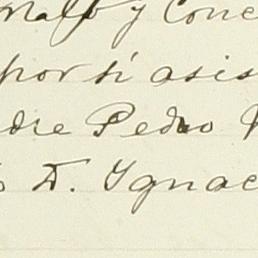 y Conc
por sí asis
dre Pedro
D. Ignac